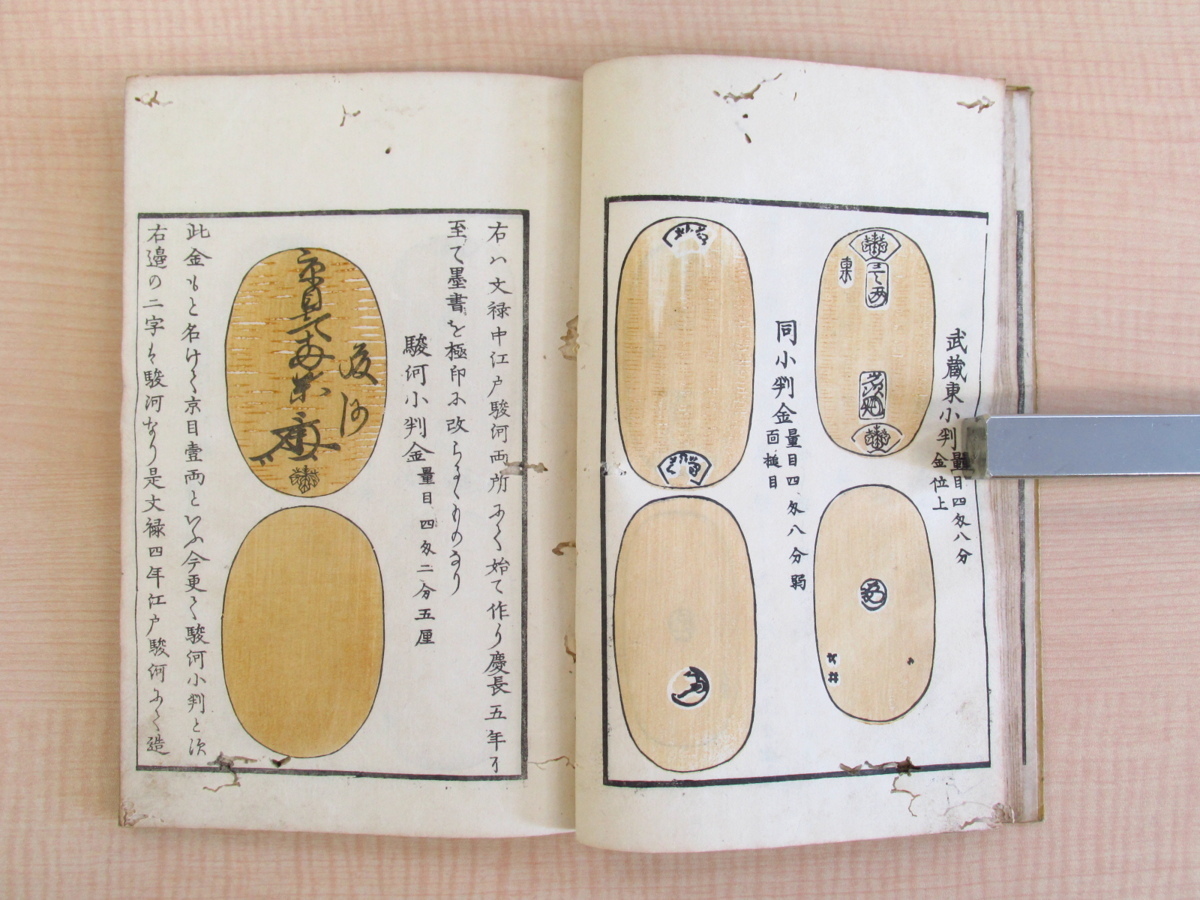 武蔵東小判 量目四匁八分
金位上
東
同小判金 量目四匁八分弱
面槌目
右ハ文禄中江戸駿河両所にて始て作り慶長五年に
至て墨書を極印に改らるゝものなり
駿河小判金 量目四匁二分五厘
京目壹両
駿河
此金もと名けて京目壹両といふ今更て駿河小判と次
右邉の二字は駿河なり是文禄四年江戸駿河にて造